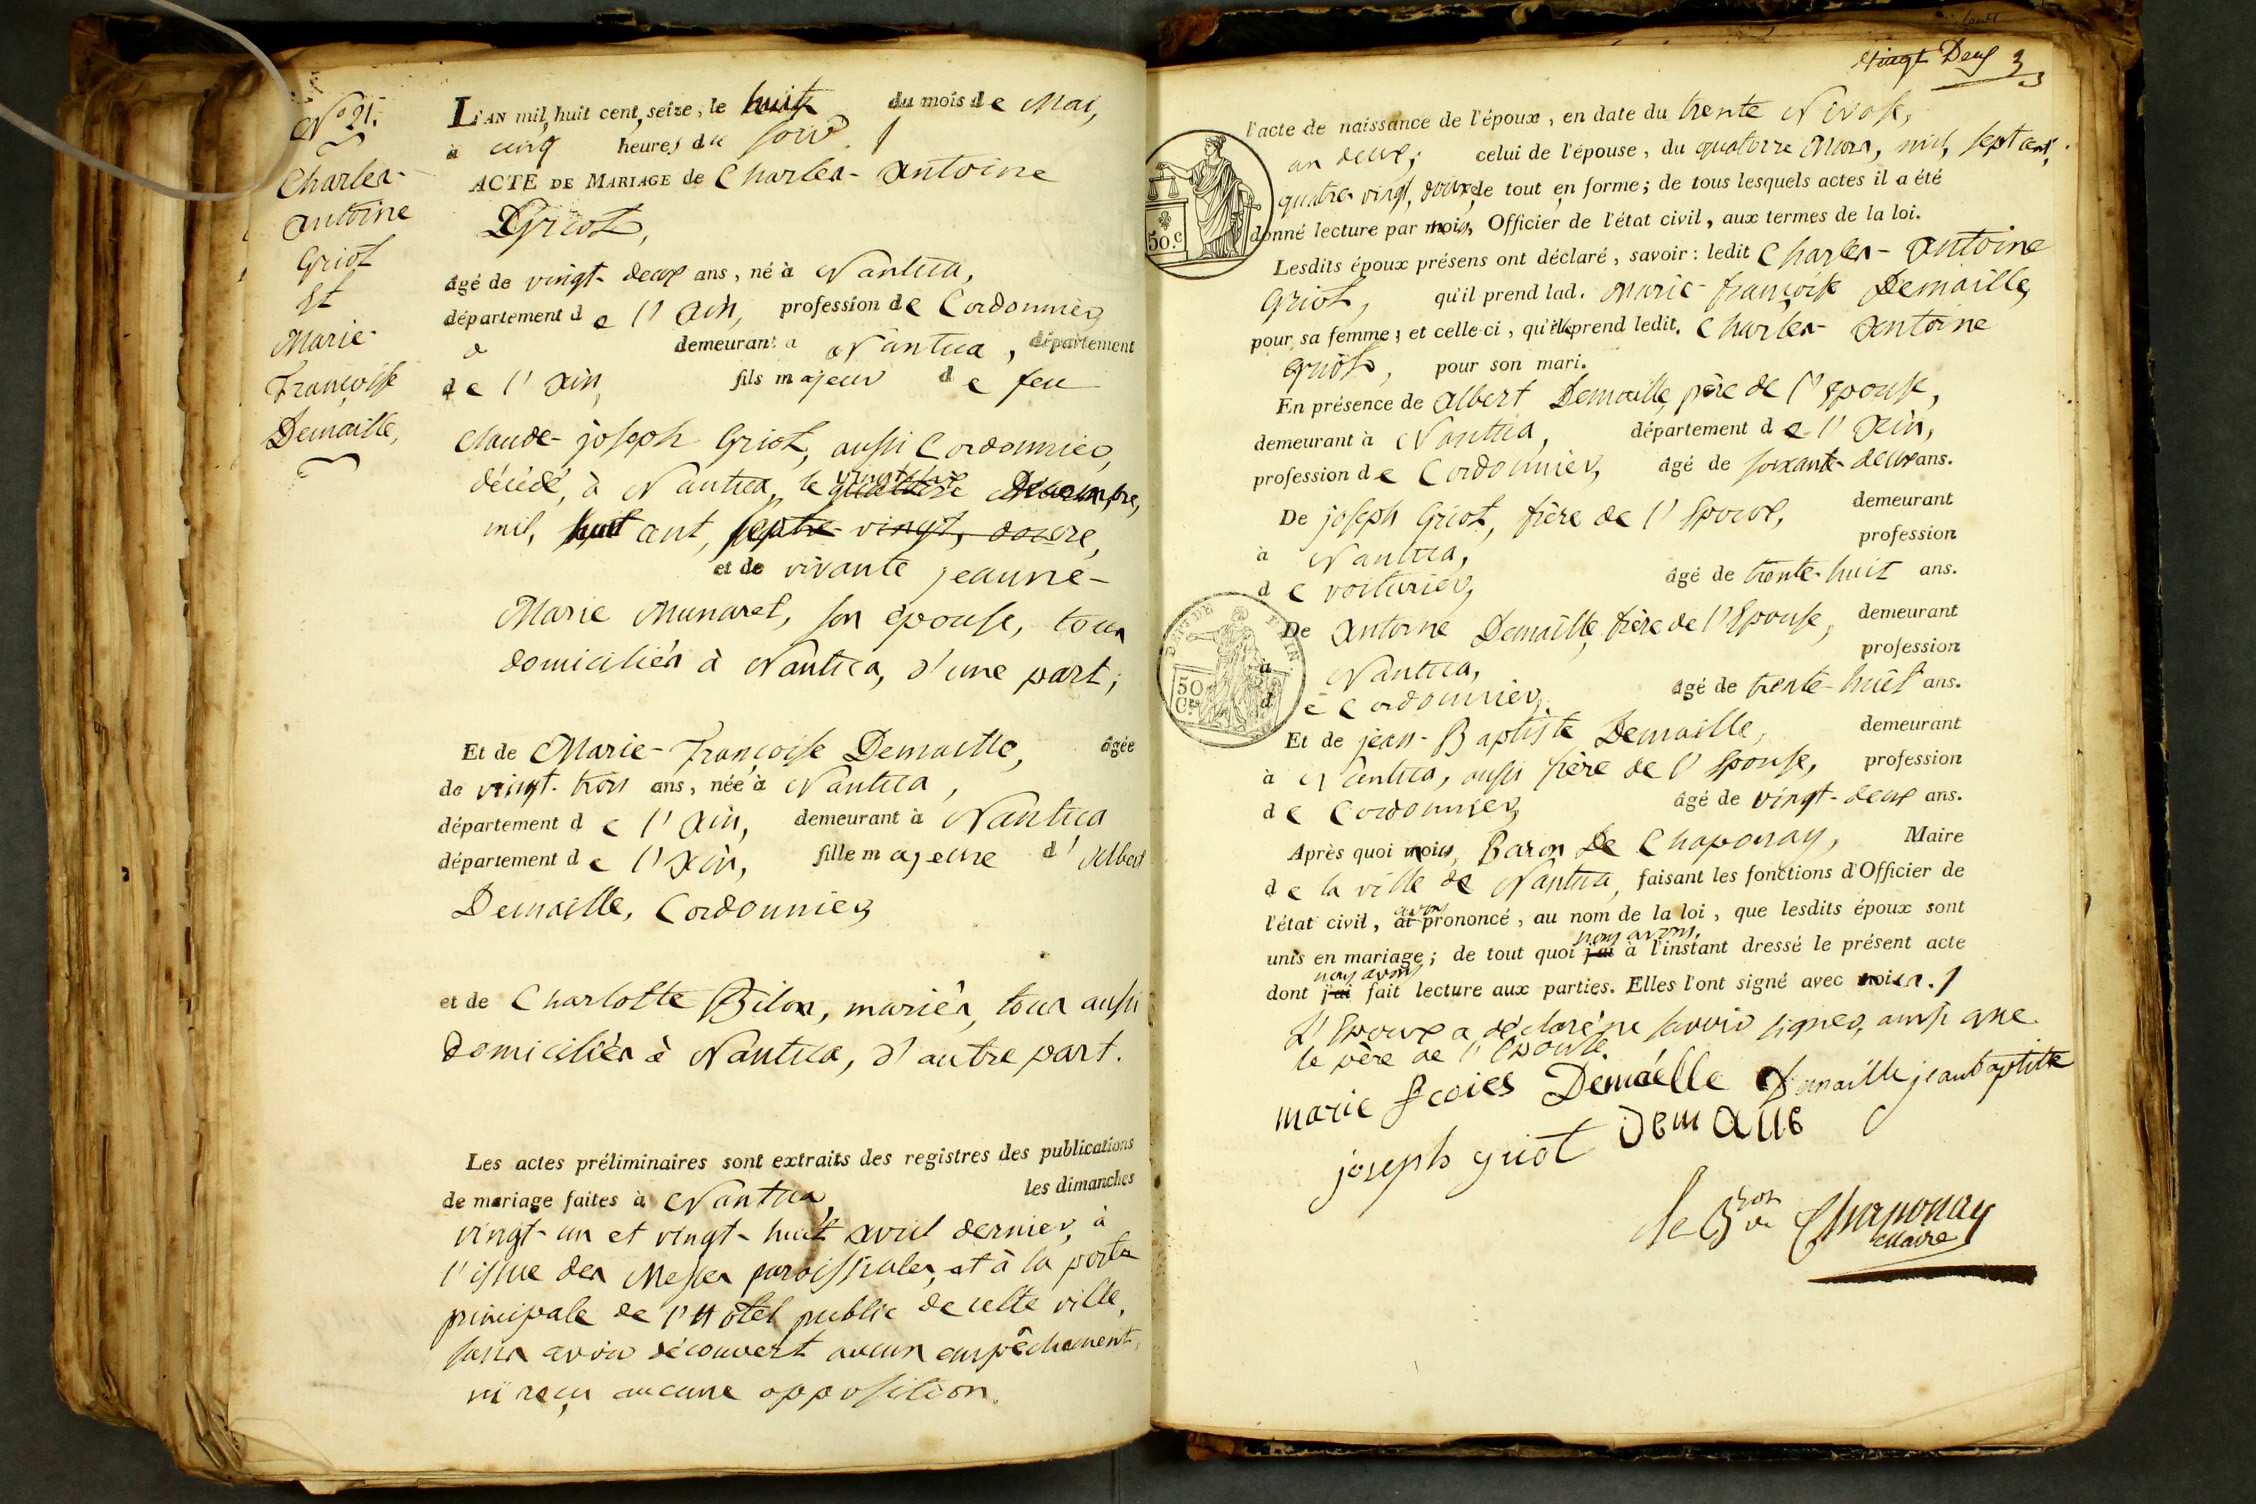 N.° 21.
Charles-
Antoine
Griot
Et
Marie-
Françoise
Demaille,
L'AN mil huit cent seize, le huit du mois de Mai,
à cinq heures du soir.
ACTE DE MARIAGE de Charles-Antoine
Griot,
âgé de vingt-deux ans, né à Nantua,
département de l'Ain, profession de Cordonnier
demeurant à Nantua, département
de l'Ain, fils majeur de feu
Claude-joseph Griot, aussi Cordonnier,
décédé, à Nantua, le
mil, huit cent,
et de vivante jeanne-
Marie Munaret, son épouse, tous
domiciliés à Nantua, d'une part;
Et de Marie-Françoise Demaille, âgée
de vingt-trois ans, née à Nantua,
département de l'Ain, demeurant à Nantua
département de l'Ain, fille majeure d'Albert
Demaille, Cordonnier,
et de Charlotte Bilon, mariés, tous aussi
domiciliés à Nantua, d'autre part.
Les actes préliminaires sont extraits des registres des publications
de mariage faites à Nantua, les dimanches
vingt-un et vingt-huit avril dernier, à
l'issue des Messes paroissiales, et à la porte
principale de l'Hôtel public de cette ville,
sans avoir découvert aucun empêchement,
ni reçu aucune opposition.
vingt Deux
l'acte de naissance de l'époux, en date du trente Nivose,
an deux; celui de l'épouse, du quatorze Mars, mil, sept cent,
quatre vingt, douze, le tout en forme; de tous lesquels actes il a été
donné lecture par nous, Officier de l'état civil, aux termes de la loi.
50.c
Lesdits époux présens ont déclaré, savoir: ledit Charles-Antoine
Griot, qu'il prend lad. Marie-françoise Demaille,
pour sa femme; et celle-ci, qu'elle prend ledit. Charles-Antoine
Griot, pour son mari.
En présence de Albert Demaille, père de l'Epouse,
demeurant à Nantua, département de l'Ain,
profession de Cordonnier, âgé de soixante-deux ans.
De joseph Griot, frère de l'Epoux, demeurant
à Nantua, profession
de voiturier, âgé de trente-huit ans.
De Antoine Demaille, frère de l'Epouse, demeurant
à Nantua, profession
de Cordonnier, âgé de trente-huit ans.
50
C.es
Et de jean-Baptiste Demaille, demeurant
à Nantua, aussi frère de l'Epouse, profession
de Cordonnier, âgé de vingt-deux ans.
Après quoi nous, Baron De Chaponay, Maire
de la ville de Nantua, faisant les fonctions d'Officier de
avons
l'état civil, ai prononcé, au nom de la loi, que lesdits époux sont
nous avons,
unis en mariage; de tout quoi j'ai à l'instant dressé le présent acte
nous avons
dont j'ai fait lecture aux parties. Elles l'ont signé avec nous.
L'Epoux a déclaré ne savoir signer, ainsi que
le père de l'Epouse.
marie Demaëlle Demaille jeanbaptiste
joseph griot Demaille
le Bon de Chaponay
Maire